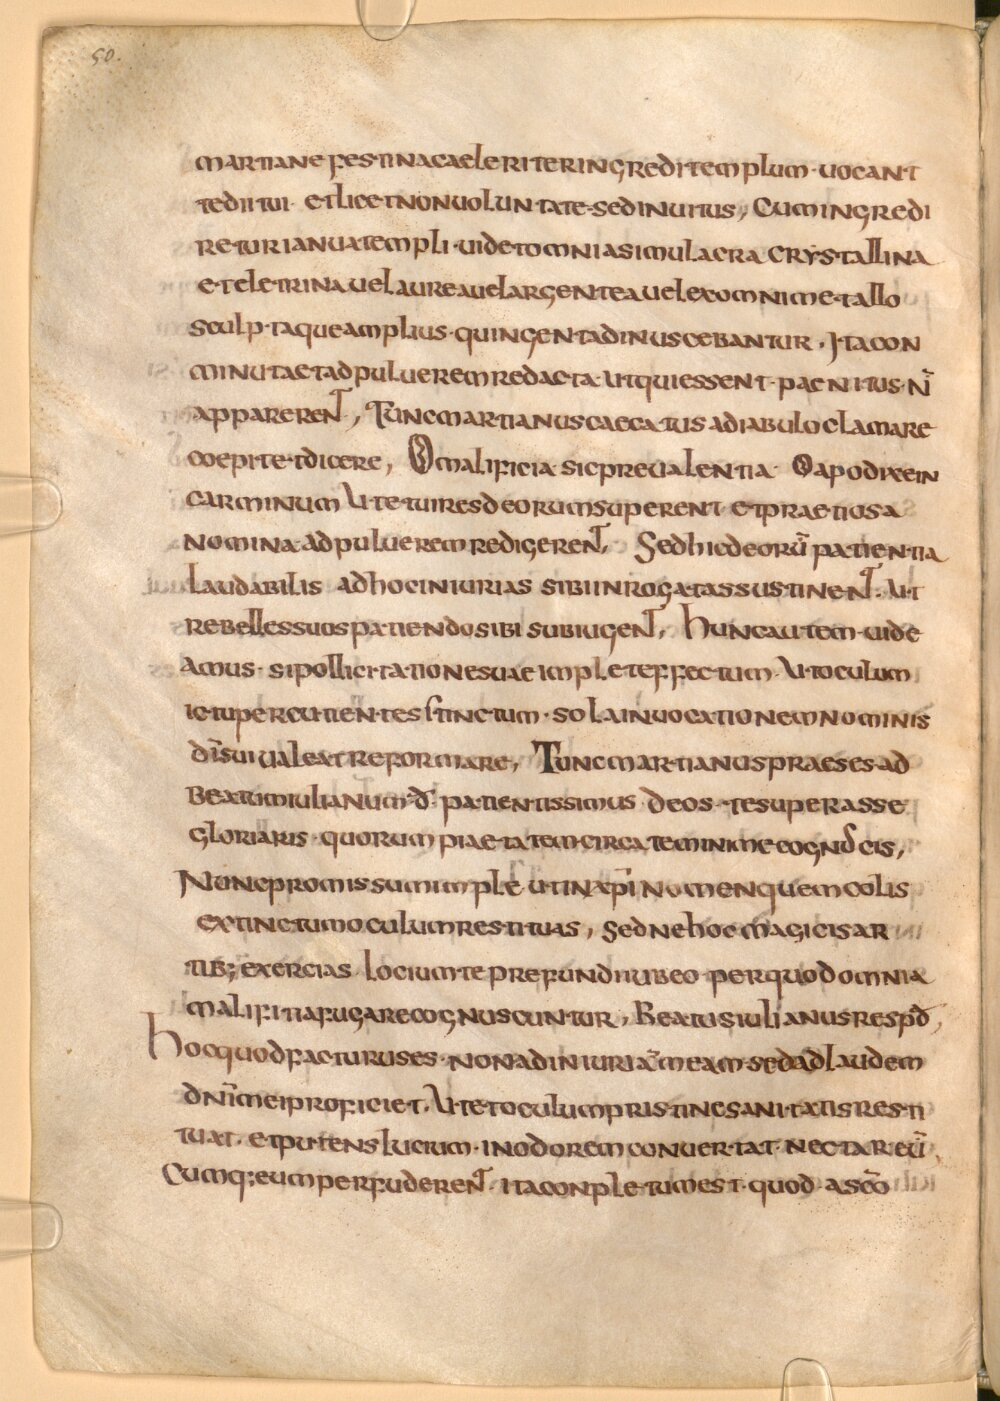 50.
martiane festina caeleriter ingredi templum · uocant
te dii tui · et licet non uoluntate · sed inuitus, Cum ingredi
retur ianua templi · uidet omnia simulacra crystallina
et eletrina uel aurea uel argentea uel ex omni metallo
sculpta que amplius · quingenta dinuscebantur · Ita con
minuta et ad puluerem redacta · ut qui essent · paenitus · n̄
apparerent, Tunc martianus caecatus a diabulo clamare
coepit et dicere, O malificia sic preualentia · O apodixein
carminum Ut et uires deorum superent · et praetiosa
nomina ad puluerem redigerent, Sed hic deorū patientia
laudabilis ad hoc iniurias sibi inrogatas sustinent · ut
rebelles suos patiendo sibi subiugent, hunc autem · uide
amus · si pollicitationes suae implet effectum · Ut oculum
ictu percutientes stinctum · sola inuocationem nominis
dī sui ualeat reformare, Tunc martianus praeses ad
beatum iulianum · d̄ · patientissimus deos · te superasse
gloriaris · quorum piaetatem · circa te minime cognoscis,
Nunc promissum imple ut in xp̄i nomen quem colis
extinctum oculum restituas, sed ne hoc magicis ar
tib; exercias locium te prefundi iubeo · per quod omnia
malifitia fugare cognuscuntur, Beatus iulianus resp̄d,
hoc quod facturus es · non ad iniuriā meam · sed ad laudem
dn̄i mei proficiet, Ut et oculum pristine sanitatis resti
tuat · et putens lucium · in odorem conuertat nectareū,
Cumq; eum perfuderent · ita conpletum est · quod a sc̄o